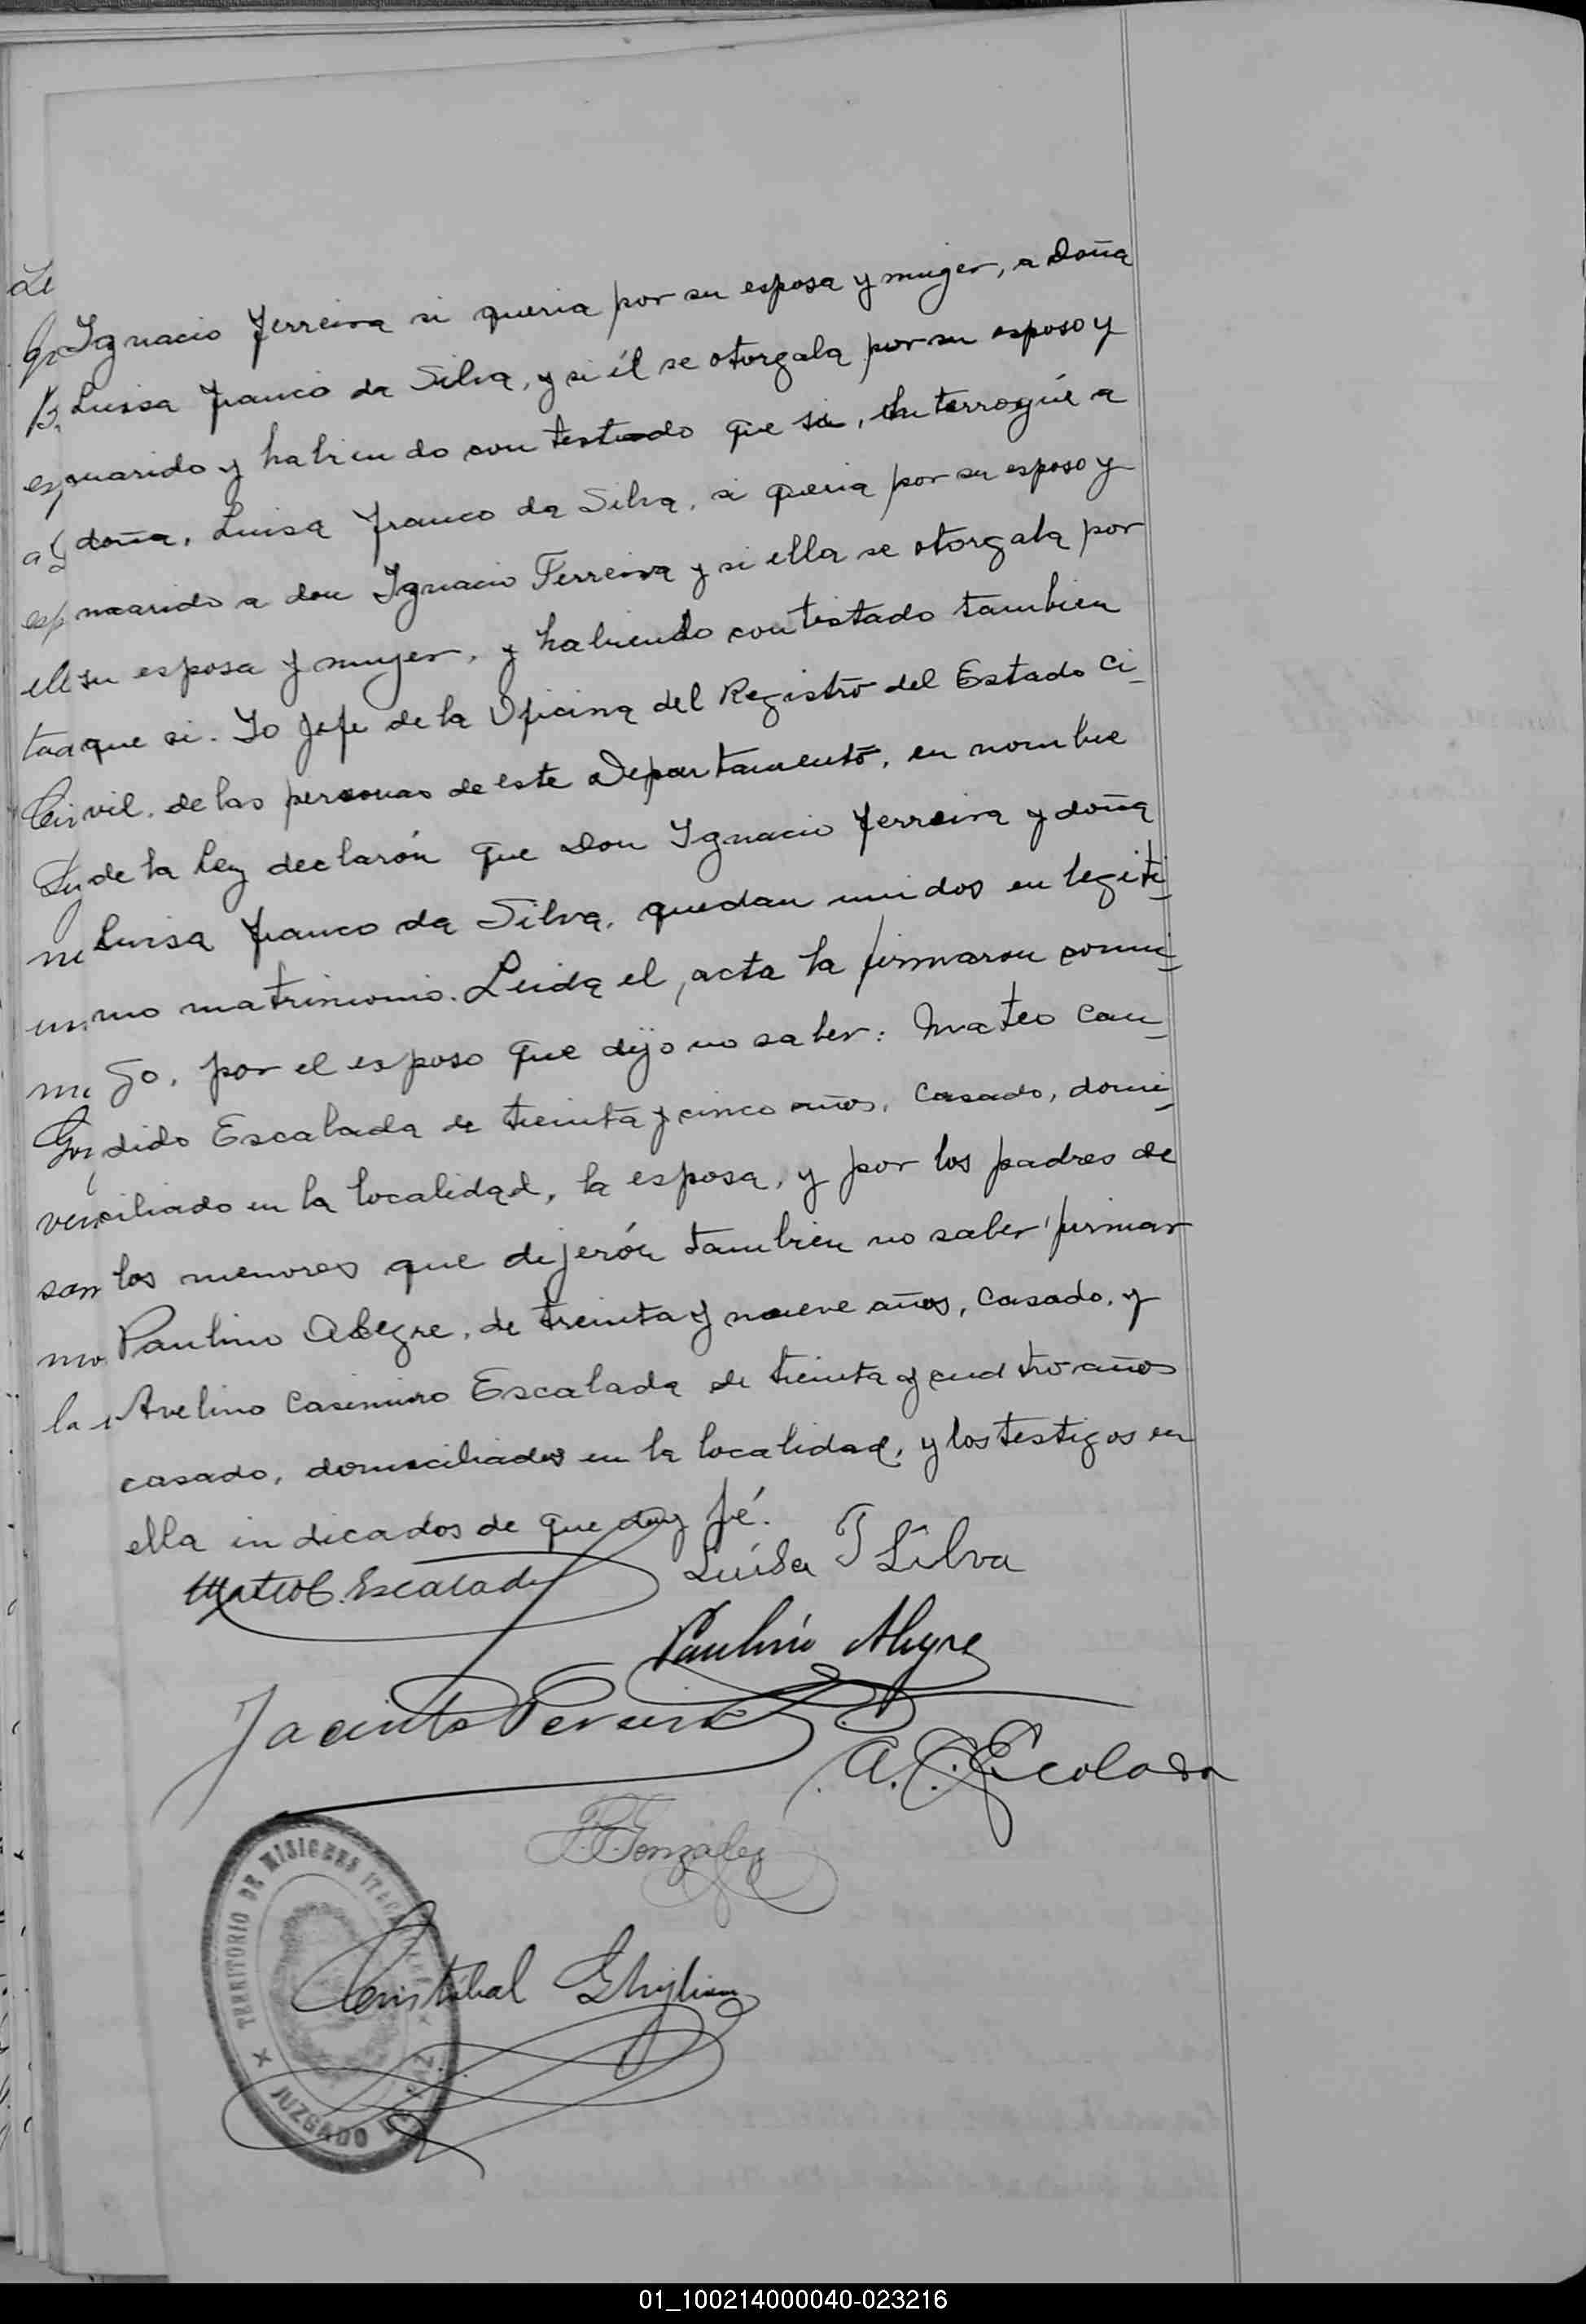 Ignacio Ferreira si queria por su esposa y muger, a Doña
Luisa Franco da Silva, y si él se otorgala por su esposo y
marido y habiendo contestado que si, Interrogúe a
doña, Luisa Franco da Silva, si queria por su esposo y
marido a don Ignacio Ferreira y si ella se otorgala por
su esposa y muger, y habiendo contestado tambien
que si. Yo Jefe de la Oficina del Registro del Estado Ci_
vil, de las personas de este Departamento, en nombre
de la Ley declarón que Don Ignacio Ferreira y doña
Luisa Franco da Silva, quedan unidos en legiti_
mo matrimonio. Leida el, acta la firmaron conmi_
go, por el esposo que dijo no saber: Mateo Can_
dido Escalada de treinta y cinco años, casado, domi_
ciliado en la localidad, la esposa, y por los padres de
los menores que dijerón tambien no saber firmar
Paulino Alegre, de treinta y nueve años, casado, y
Avelino Casimiro Escalada de treinta y cuatro años
casado, domiciliados en la localidad, y los testigos en
ella indicados de que doy fé.
Mateo C. Escalada Luisa F Silva
Paulino Alegre
Jacinto Pereira
A. C. Escalada
Gonzalez
Cristóbal
TERRITORIO DE MISIONES
JUZGADO DE PAZ
01_100214000040-023216